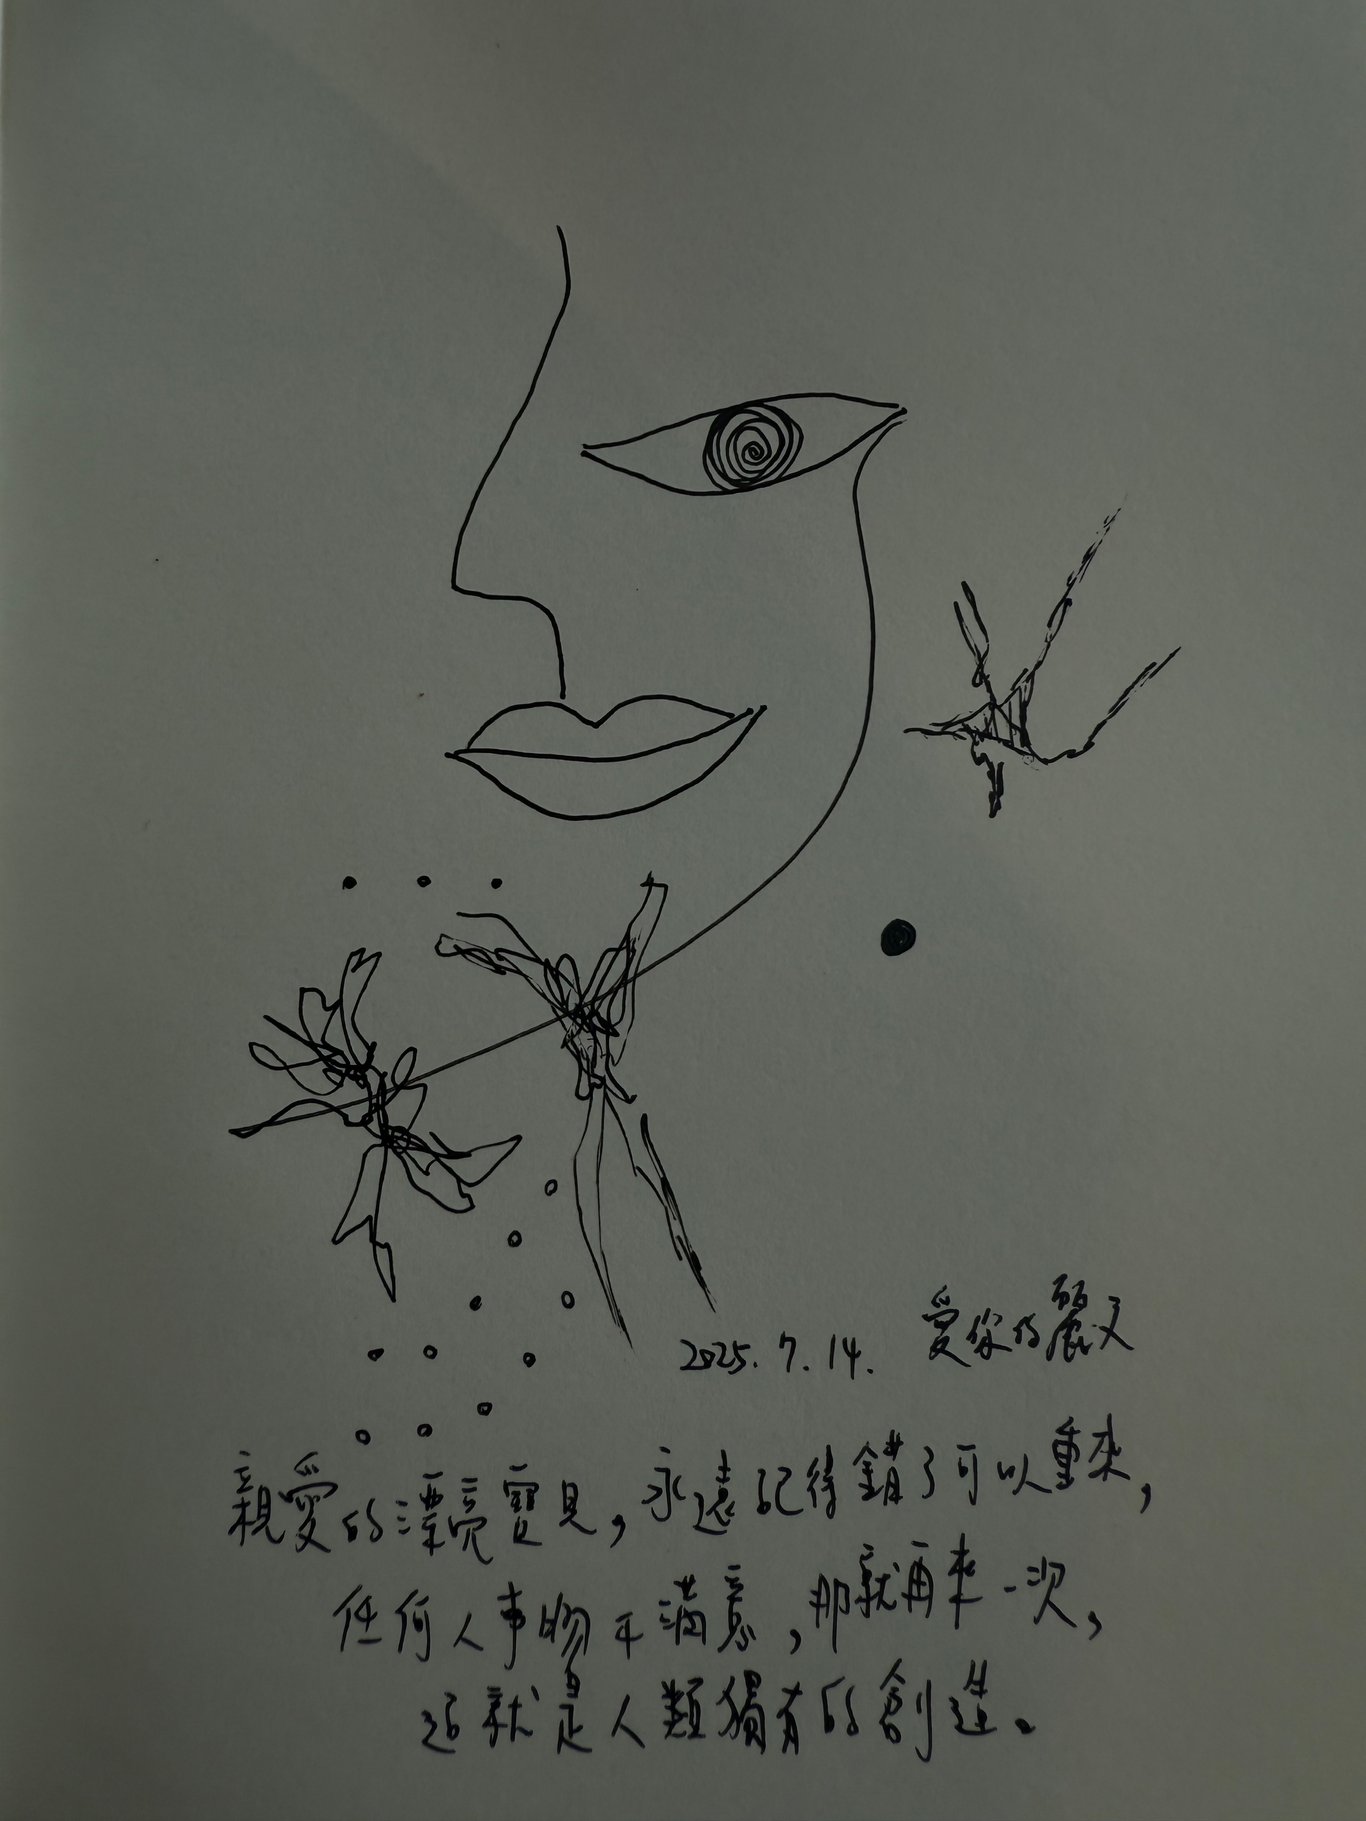 2025.7.14. 愛你的麗文
親愛的漂亮寶貝，永遠記得錯了可以重來，
任何人事物不滿意，那就再來一次，
這就是人類獨有的創造。